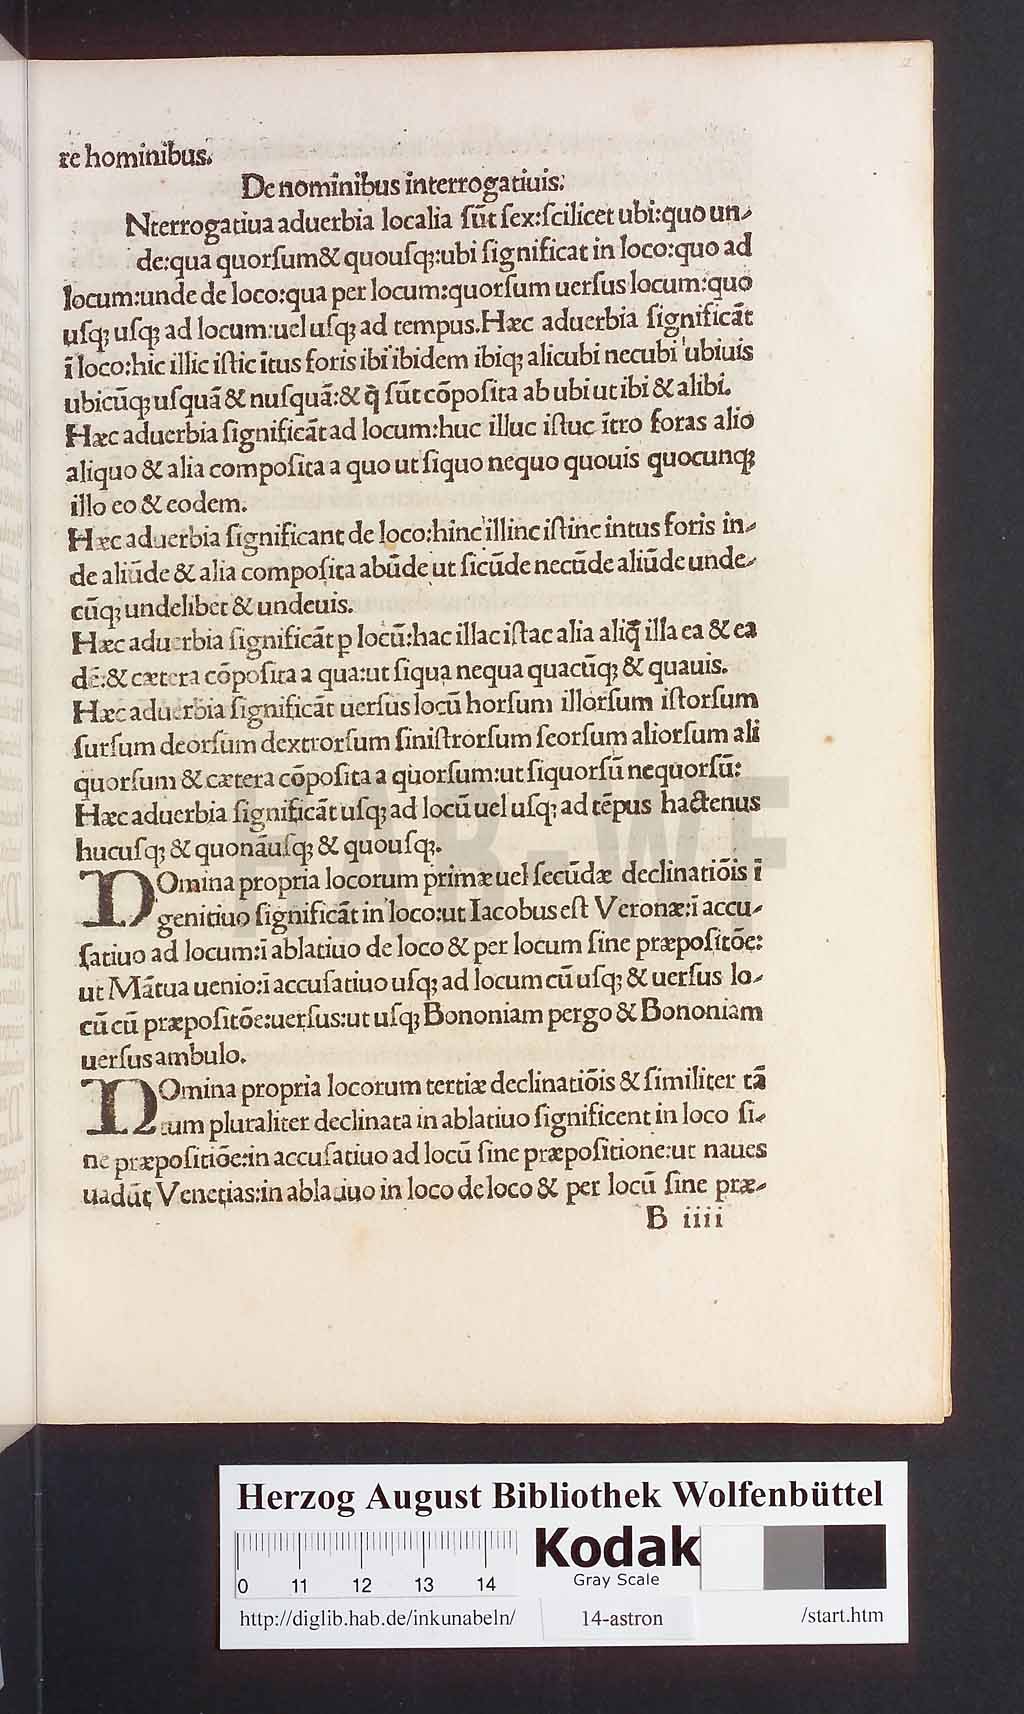 re hominibus.
De nominibus interrogatiuis:
Nterrogatiua aduerbia localia ſũt ſex:ſcilicet ubi:quo un-
de:qua quorſum& quouſqꝫ:ubi ſignificat in loco:quo ad
locum:unde de loco:qua per locum:quorſum uerſus locum:quo
uſqꝫ uſqꝫ ad locum:uel uſqꝫ ad tempus.Hæc aduerbia ſignificãt
ĩ loco:hic illic iſtic ĩtus foris ibi ibidem ibiqꝫ alicubi necubi ubiuis
ubicũqꝫ uſquã & nuſquã:& q̃ ſũt cõpoſita ab ubi ut ibi & alibi.
Hæc aduerbia ſignificãt ad locum:huc illuc iſtuc ĩtro foras alio
aliquo & alia compoſita a quo ut ſiquo nequo quouis quocunqꝫ
illo eo & eodem.
Hæc aduerbia ſignificant de loco:hinc illinc iſtinc intus foris in-
de aliũde & alia compoſita abũde ut ſicũde necũde aliũde unde-
cũqꝫ undelibet & undeuis.
Hæc aduerbia ſignificãt ꝑ locũ:hac illac iſtac alia aliq̃ illa ea & ea
dẽ:& cætera cõpoſita a qua:ut ſiqua nequa quacũqꝫ & quauis.
Hæc aduerbia ſignificãt uerſus locũ horſum illorſum iſtorſum
ſurſum deorſum dextrorſum ſiniſtrorſum ſeorſum aliorſum ali
quorſum & cætera cõpoſita a quorſum:ut ſiquorſũ nequorſũ:
Hæc aduerbia ſignificãt uſqꝫ ad locũ uel uſqꝫ ad tẽpus hactenus
hucuſqꝫ & quonãuſqꝫ & quouſqꝫ.
NOmina propria locorum primæ uel ſecũdæ declinatiõis ĩ
genitiuo ſignificãt in loco:ut Iacobus eſt Veronæ:ĩ accu-
ſatiuo ad locum:ĩ ablatiuo de loco & per locum ſine præpoſitõe:
ut Mãtua uenio:ĩ accuſatiuo uſqꝫ ad locum cũ uſqꝫ & uerſus lo-
cũ cũ præpoſitõe:uerſus:ut uſqꝫ Bononiam pergo & Bononiam
uerſus ambulo.
NOmina propria locorum tertiæ declinatiõis & ſimiliter tã
tum pluraliter declinata in ablatiuo ſignificent in loco ſi-
ne præpoſitiõe:in accuſatiuo ad locũ ſine præpoſitione:ut naues
uadũt Venetias:in ablatiuo in loco de loco & per locũ ſine præ-
B iiii
HAB-WF
Herzog August Bibliothek Wolfenbüttel
0 11 12 13 14
Kodak
Gray Scale
http://diglib.hab.de/inkunabeln/ 14-astron /start.htm